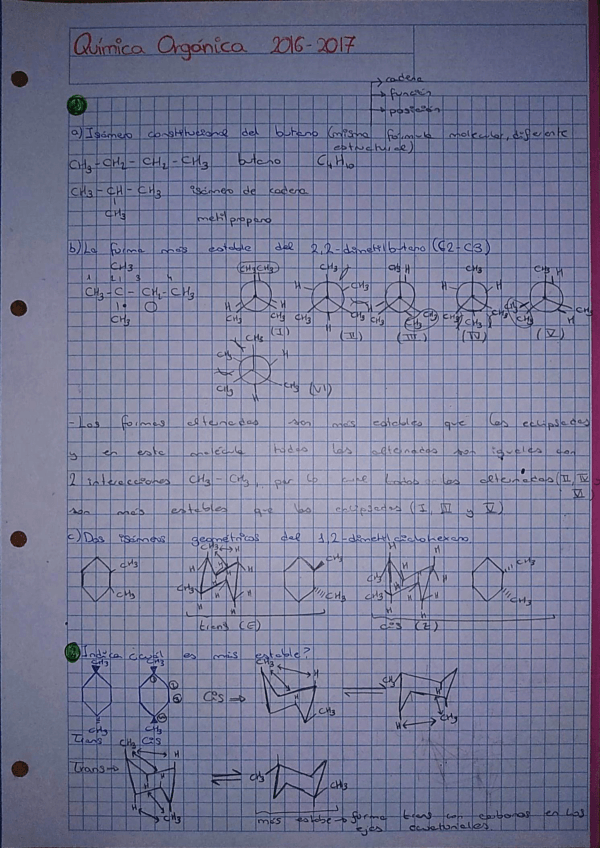 Química Orgánica 2016-2017
→ cadena
→ función
→ posición
1
a) Isómero constitucional del butano (misma fórmula molecular, diferente
estructural)
CH3-CH2-CH2-CH3 butano C4H10
CH3-CH-CH3 isómero de cadena
CH3
metilpropano
b) La forma más estable del 2,2-dimetilbutano (C2-C3)
CH3
1 2 3 4
CH3-C-CH2-CH3
CH3
(I) (II) (III) (IV) (V)
(VI)
-Las formas alternadas son más estables que las eclipsadas
y en esta molécula todas las alternadas son iguales con
2 interacciones CH3-CH3, por lo cual todas las alternadas (II, IV,
VI)
son más estables que las eclipsadas (I, III y V)
c) Dos isómeros geométricos del 1,2-dimetilciclohexano
CH3 CH3 CH3 CH3 CH3 CH3
trans (E) cis (Z)
2 Indica ¿cuál es más estable?
CH3 CH3
CH3 CH3
Trans Cis
Cis →
Trans →
más estable → forma trans con carbonos en los
ejes ecuatoriales